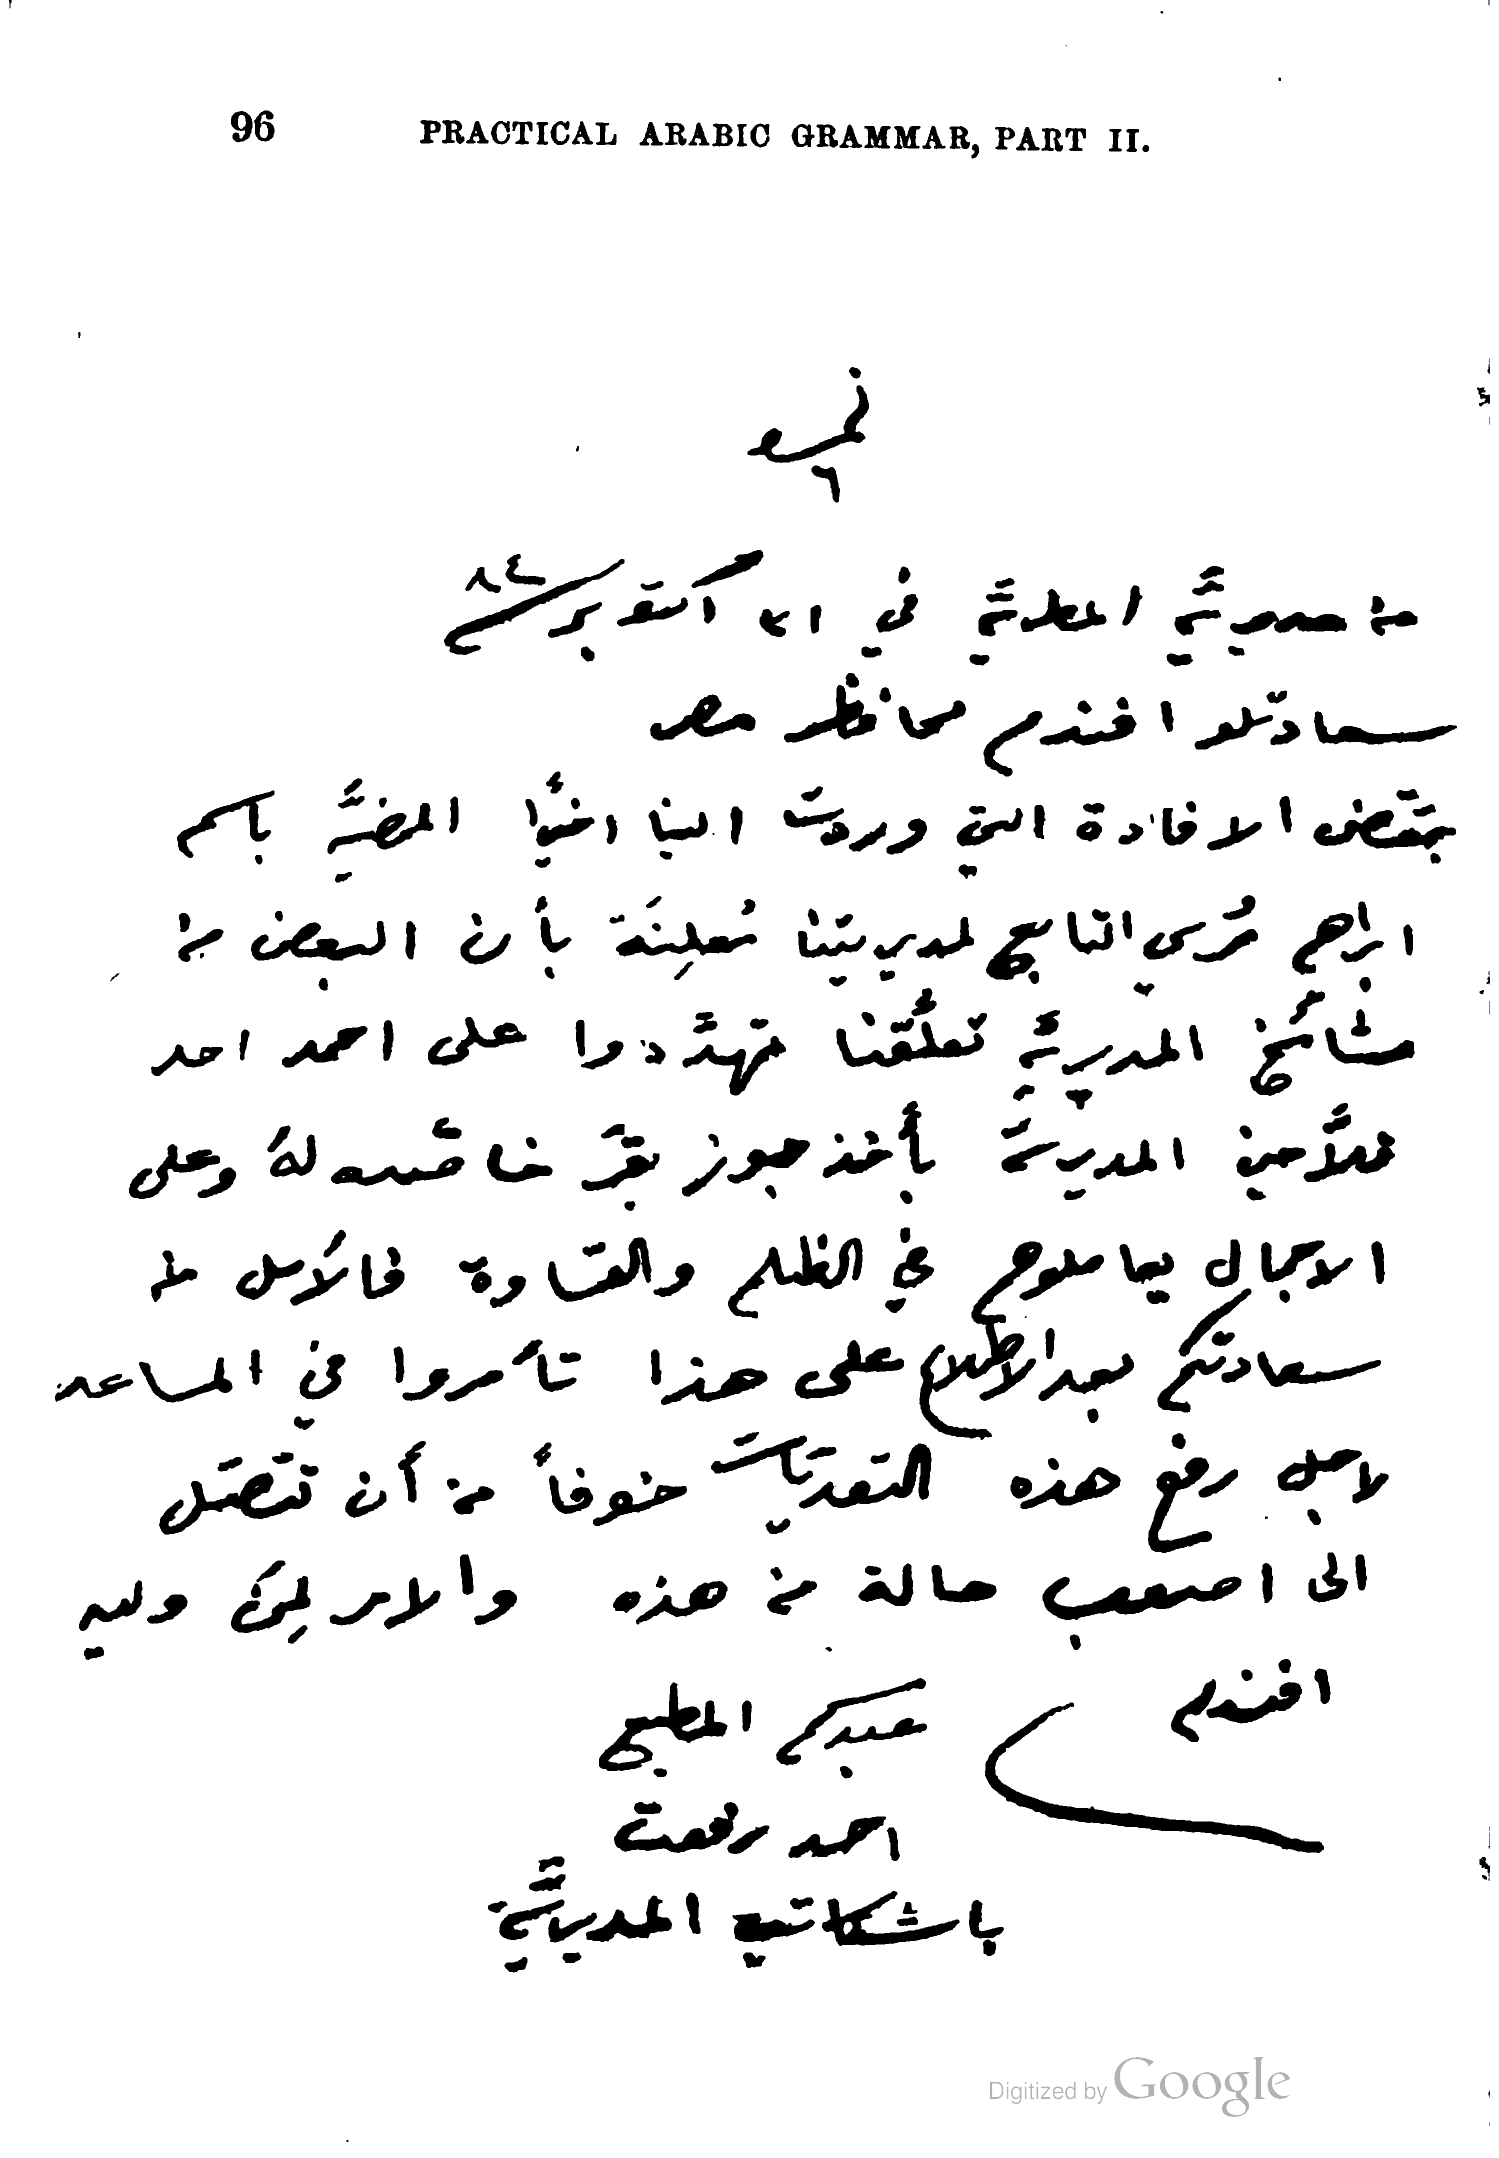 96 PRACTICAL ARABIC GRAMMAR, PART II.
نمره
٦
من مديريَّة في ٣١ اكتوبر سنة ٨٤
سعادتلو افندم محافظ مصر
بمقتضى الافادة التي وردت الينا اخيرًا الممضيَّه باسم
ابراهيم مُرسي التابع لمديريتنا مُعلِنَة بأن البعض من
مشائخ المديريَّة تعلُّقنا تهدَّدوا على احمد احد
فلاَّحين المديريَّة بأخذ جوز بقر خاصَّته لهُ وعلى
الاجمال يعاملوهم في الظلم والقساوة فالأمل من
سعادتكم بعد الاطلاع على هذا تأمروا في المساعده
لاجل رفع هذه التعدّيات خوفاً من أن تتصل
الى اصعب حالة من هذه والامر لِمَن وليه
افندم
عبدكم المطيع
احمد رفعت
باشكاتب المديريَّة
Digitized by Google